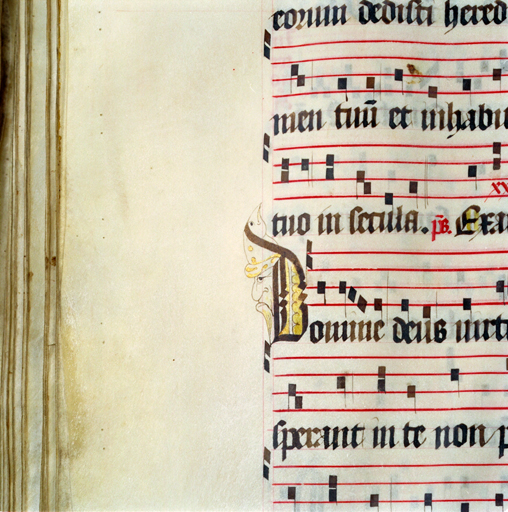 eorum dedisti hered
men tuū et inhabi
tuo in secula. ps. Exa
Domine deus virtu
sperant in te non